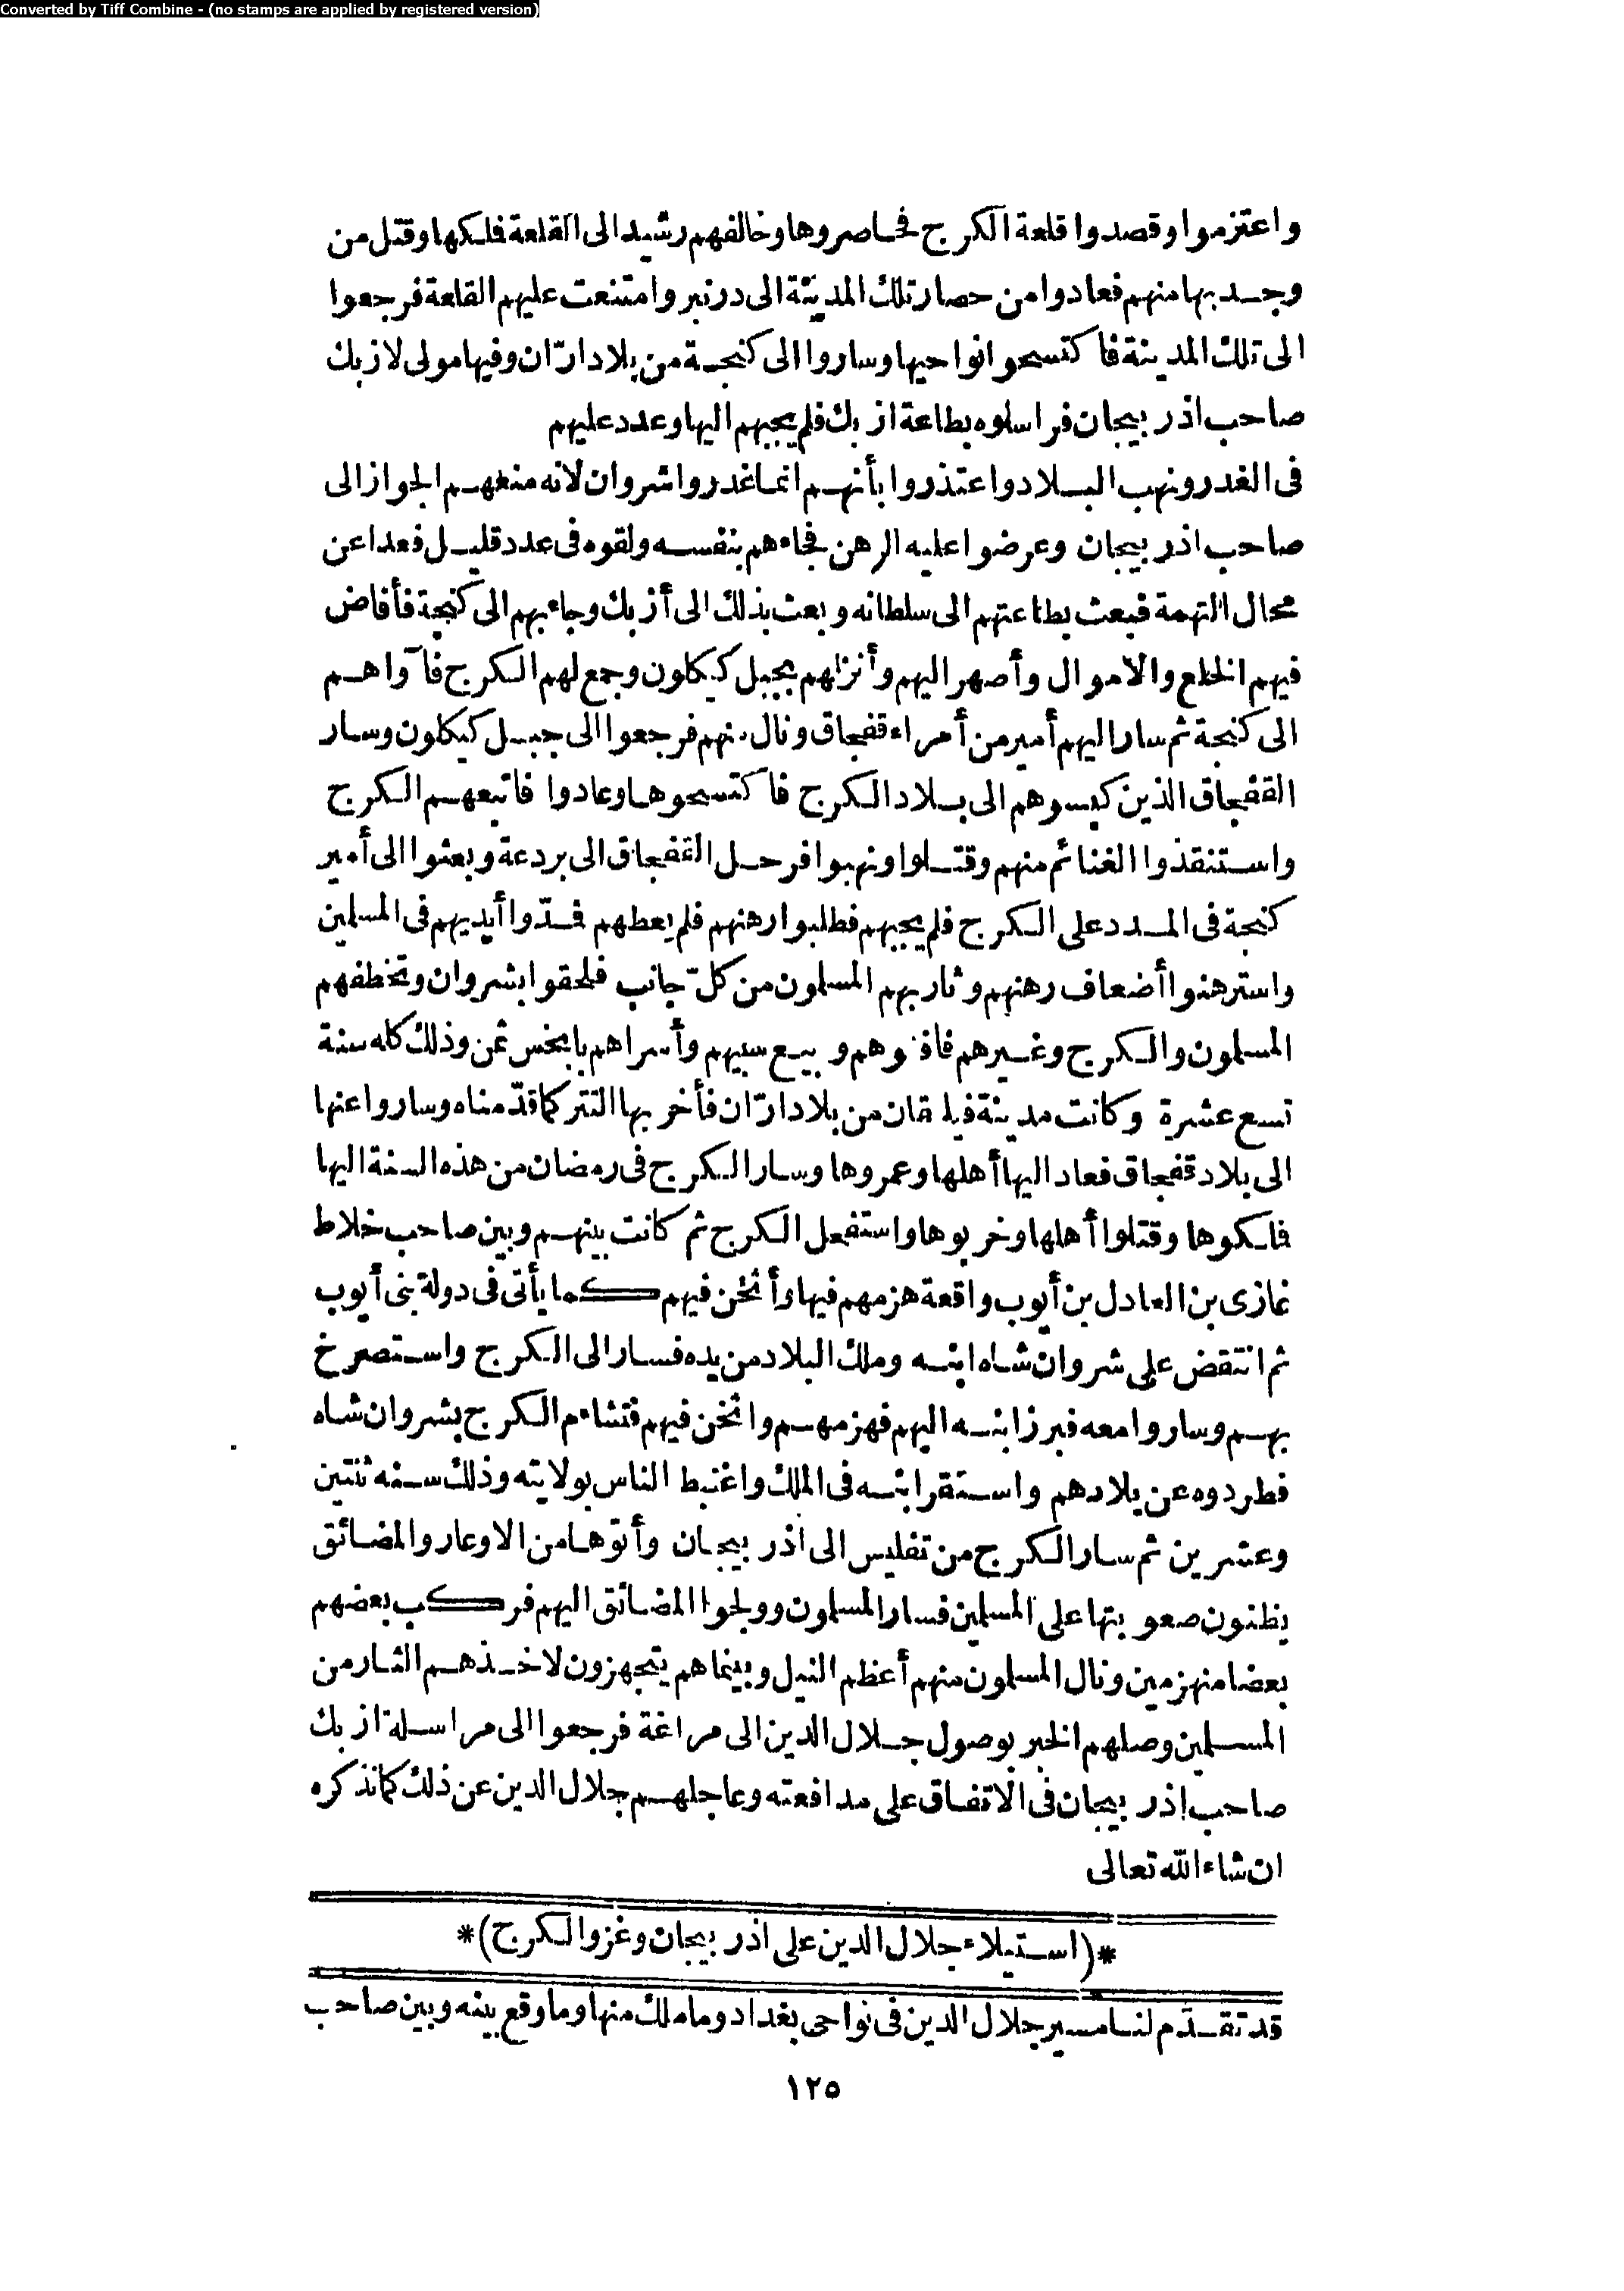 Converted by Tiff Combine - (no stamps are applied by registered version)
واعتزموا وقصدوا قلعة الكرج فحاصروها وخالفهم رشيد الى القلعة فلكها وقتل من
وجد بها منهم فعادوا من حصار تلك المدينة الى درنبر وامتنعت عليهم القلعة فرجعوا
الى تلك المدينة فاكتسحوا نواحيها وساروا الى كنجة من بلاد ارّان وفيها مولى لازبك
صاحب اذربيجان فراسلوه بطاعة ازبك فلم يجبهم اليها وعدد عليهم
فى الغدر ونهب البلاد واعتذروا بأنهم انما غدروا شروان لانه منعهم الجواز الى
صاحب اذربيجان وعرضوا عليه الرهن فجاءهم بنفسه ولقوه فى عدد قليل فعدا عن
محال التهمة فبعث بطاعتهم الى سلطانه وبعث بذلك الى أزبك وجاء بهم الى كنجة فأفاض
فيهم الخلع والاموال وأصهر اليهم وأنزلهم بجبل كيكلون وجمع لهم الكرج فآواهم
الى كنجة ثم سار اليهم أمير من أمراء قفجاق ونال منهم فرجعوا الى جبل كيكلون وسار
القفجاق الذين كبسوهم الى بلاد الكرج فاكتسحوها وعادوا فاتبعهم الكرج
واستنقذوا الغنائم منهم وقتلوا ونهبوا فرحل القفجاق الى بردعة وبعثوا الى أمير
كنجة فى المدد على الكرج فلم يجبهم فطلبوا رهنهم فلم يعطهم فمدّوا أيديهم فى المسلمين
واسترهنوا أضعاف رهنهم وثار بهم المسلمون من كلّ جانب فلحقوا بشروان وتخطفهم
المسلمون والكرج وغيرهم فافنوهم وبيع سبيهم وأسراهم بابخس ثمن وذلك كله سنة
تسع عشرة وكانت مدينة فيلقان من بلاد ارّان فأخربها التتر كما قدّمناه وساروا عنها
الى بلاد قفجاق فعاد اليها أهلها وعمروها وسار الكرج فى رمضان من هذه السنة اليها
فلكوها وقتلوا أهلها وخربوها واستفحل الكرج ثم كانت بينهم وبين صاحب خلاط
غازى بن العادل بن أيوب واقعة هزمهم فيها وأثخن فيهم كما يأتى فى دولة بنى أيوب
ثم انتقض على شروان شاه ابنه وملك البلاد من يده فسار الى الكرج واستصرخ
بهم وساروا معه فبرز ابنه اليهم فهزمهم واثخن فيهم فتشاءم الكرج بشروان شاه
فطردوه عن بلادهم واستقر ابنه فى الملك واغتبط الناس بولايته وذلك سنة ثنتين
وعشرين ثم سار الكرج من تفليس الى اذربيجان وأتوها من الاوعار والمضائق
يظنون صعوبتها على المسلمين فسار المسلمون وولجوا المضائق اليهم فركب بعضهم
بعضا منهزمين ونال المسلمون منهم أعظم النيل وبينما هم يتجهزون لاخذهم الثار من
المسلمين وصلهم الخبر بوصول جلال الدين الى مراغة فرجعوا الى مراسلة ازبك
صاحب اذربيجان فى الاتفاق على مدافعته وعاجلهم جلال الدين عن ذلك كما نذكره
ان شاء الله تعالى
*(استيلاء جلال الدين على اذربيجان وغزو الكرج)*
قد تقدّم لنا مسير جلال الدين فى نواحى بغداد وما ملك منها وما وقع بينه وبين صاحب
١٢٥